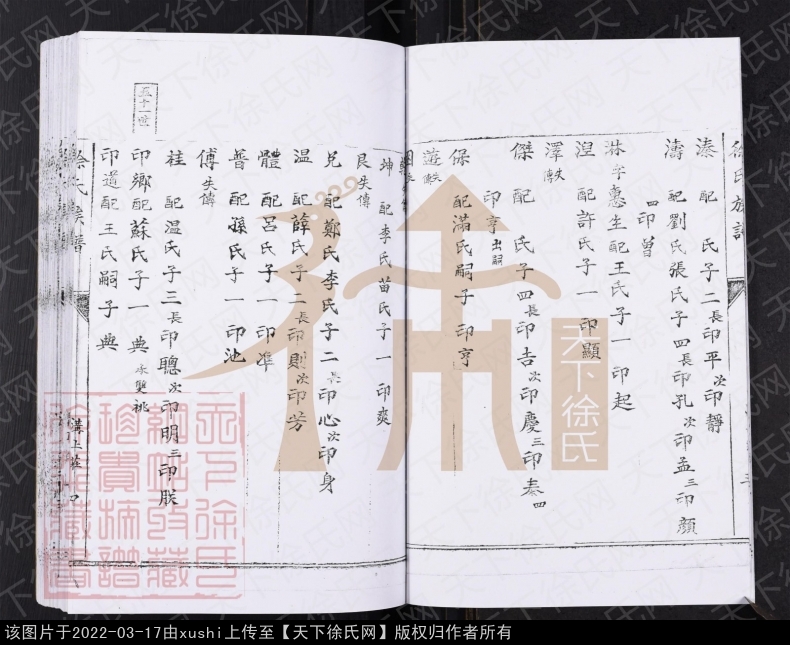 徐氏族譜
溱 配 氏子二長印平次印靜
濤 配劉氏張氏子四長印孔次印孟三印顏
四印曾
沭字惠生配王氏子一印起
湼 配許氏子一印顯
澤失傳
傑 配 氏子四長印吉次印慶三印秦四
印亨出嗣
保 配滿氏嗣子 印亨
遊失傳
坤 配李氏苗氏子一印爽
艮失傳
兌 配鄭氏李氏子二長印心次印身
温 配薛氏子二長印則次印芳
體 配呂氏子一印準
普 配孫氏子一印池
傅失傳
五十一世
桂 配温氏子三長印聰次印明三印朕
印鄉配蘇氏子一 典 承雙祧
印道配王氏嗣子 典
徐氏族譜
天下徐氏
天下徐氏网
该图片于2022-03-17由xushi上传至【天下徐氏网】版权归作者所有